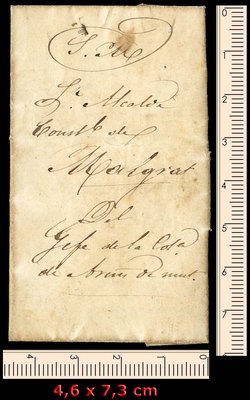 S. N.
Sr. Alcalde
Constl. de
Malgrat
Del
Gefe de la Cosa
de Arens de mut.
0
1
2
3
4
5
6
7
4
3
2
1
0
4,6 x 7,3 cm